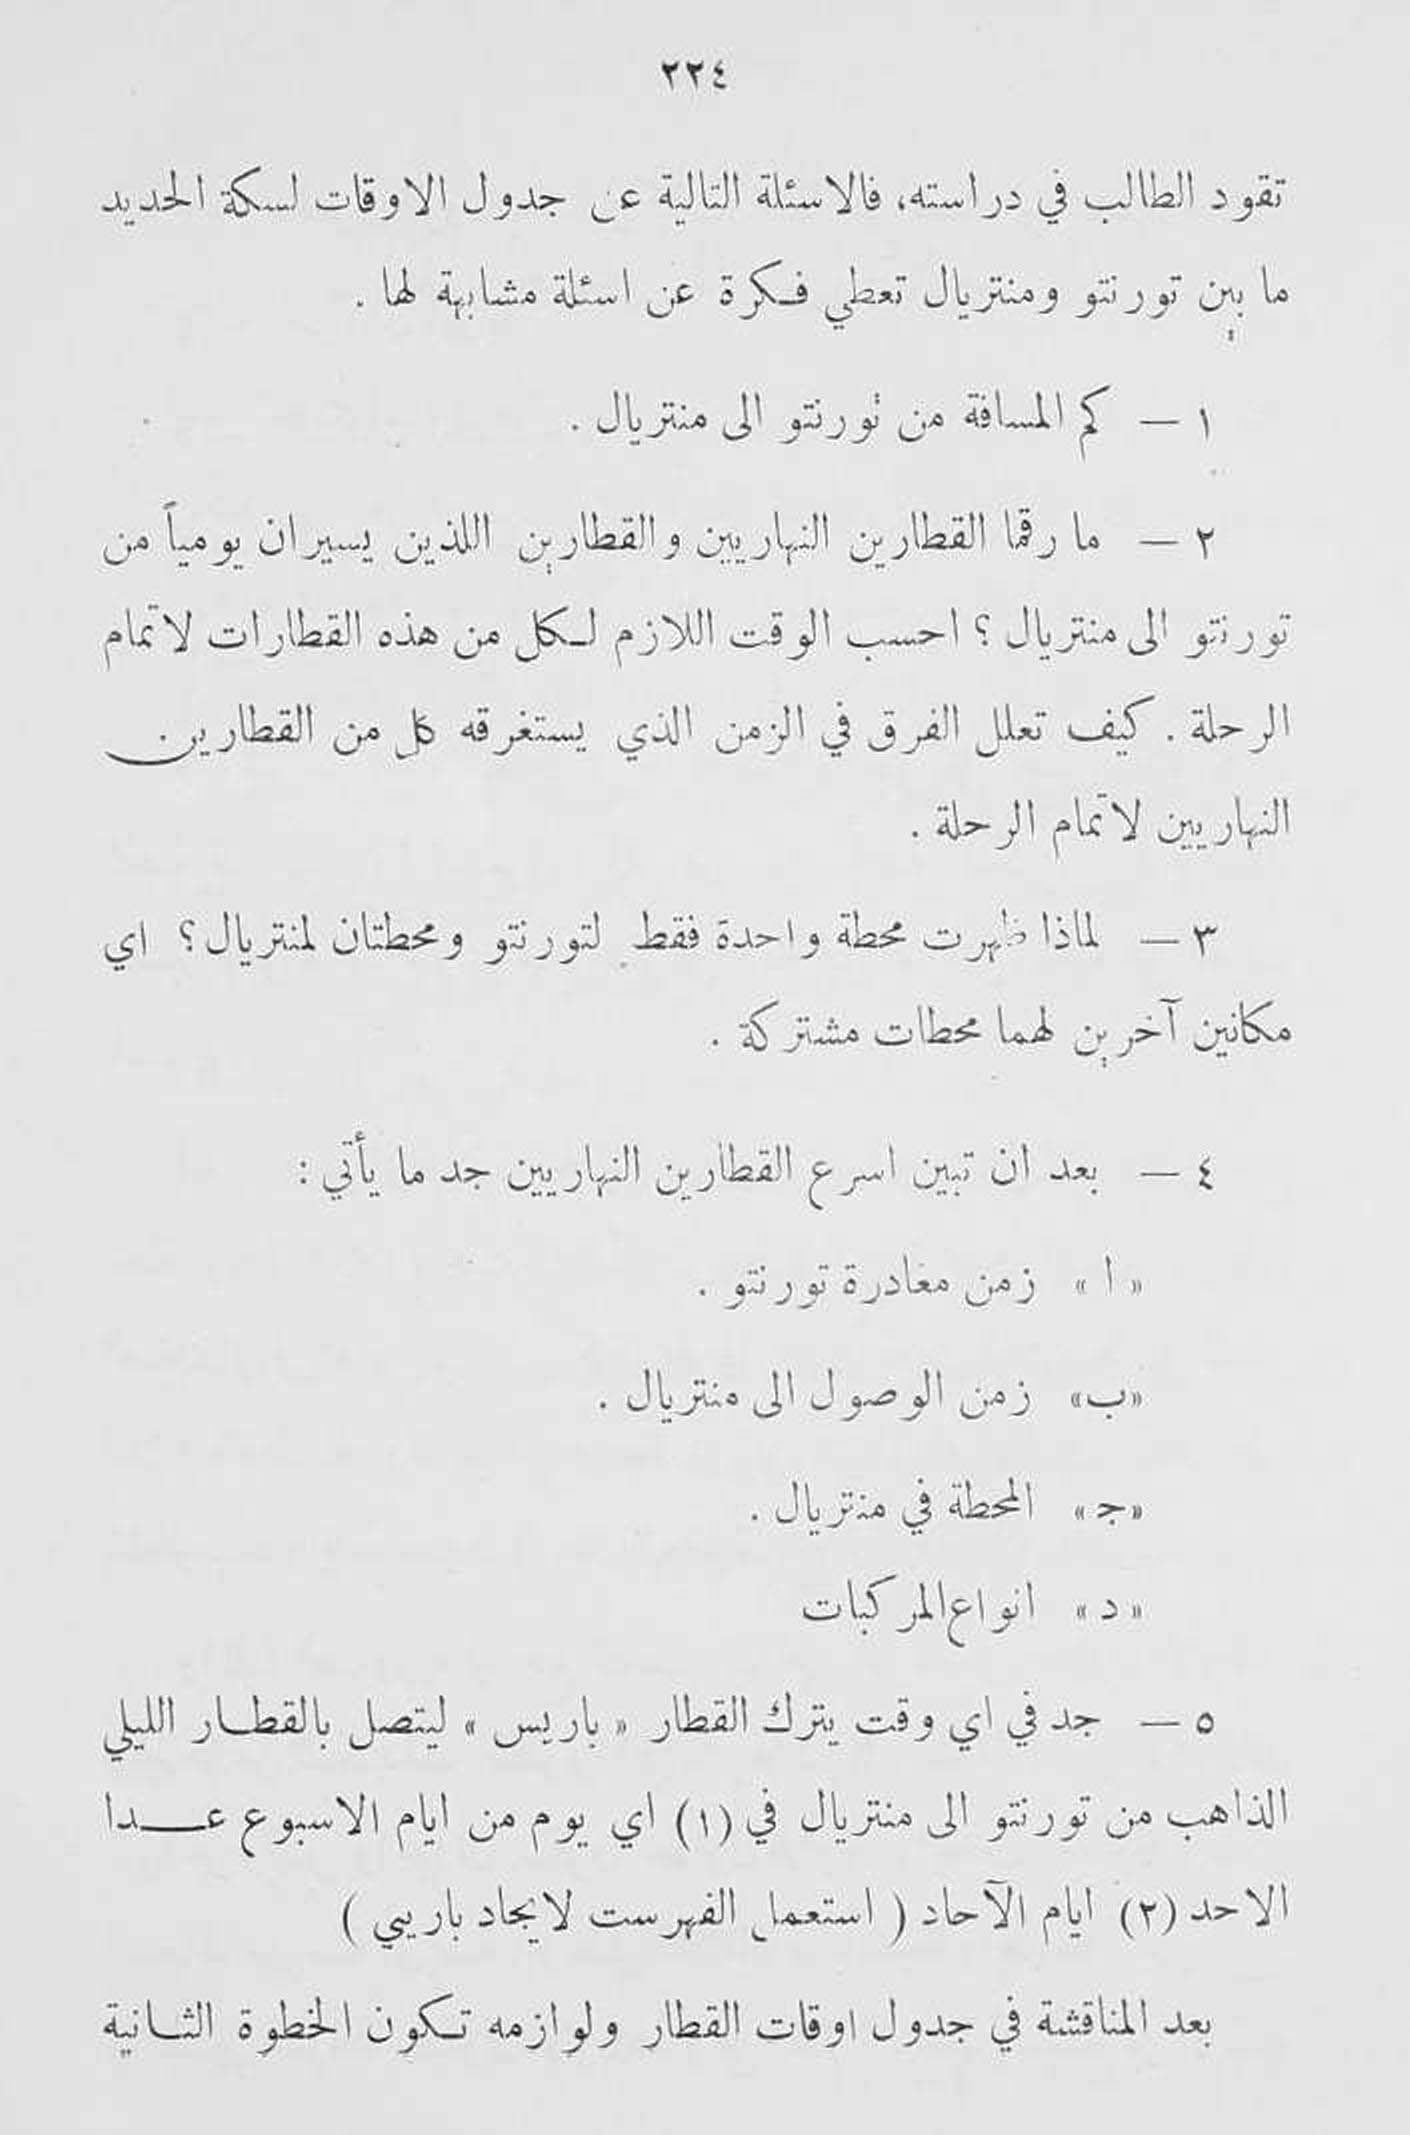 ٢٢٤
تقود الطالب في دراسته، فالاسئلة التالية عن جدول الاوقات لسكة الحديد
ما بين تورنتو ومنتريال تعطي فكرة عن اسئلة مشابهة لها .
١ — كم المسافة من تورنتو الى منتريال .
٢ — ما رقما القطارين النهاريين والقطارين اللذين يسيران يومياً من
تورنتو الى منتريال ؟ احسب الوقت اللازم لكل من هذه القطارات لاتمام
الرحلة . كيف تعلل الفرق في الزمن الذي يستغرقه كل من القطارين
النهاريين لاتمام الرحلة .
٣ — لماذا ظهرت محطة واحدة فقط لتورنتو ومحطتان لمنتريال ؟ اي
مكانين آخرين لهما محطات مشتركة .
٤ — بعد ان تبين اسرع القطارين النهاريين جد ما يأتي :
« ا » زمن مغادرة تورنتو .
«ب» زمن الوصول الى منتريال .
«ج» المحطة في منتريال .
« د » انواع المركبات
٥ — جد في اي وقت يترك القطار « باريس » ليتصل بالقطار الليلي
الذاهب من تورنتو الى منتريال في (١) اي يوم من ايام الاسبوع عدا
الاحد (٢) ايام الآحاد ( استعمل الفهرست لايجاد باريي )
بعد المناقشة في جدول اوقات القطار ولوازمه تكون الخطوة الثانية